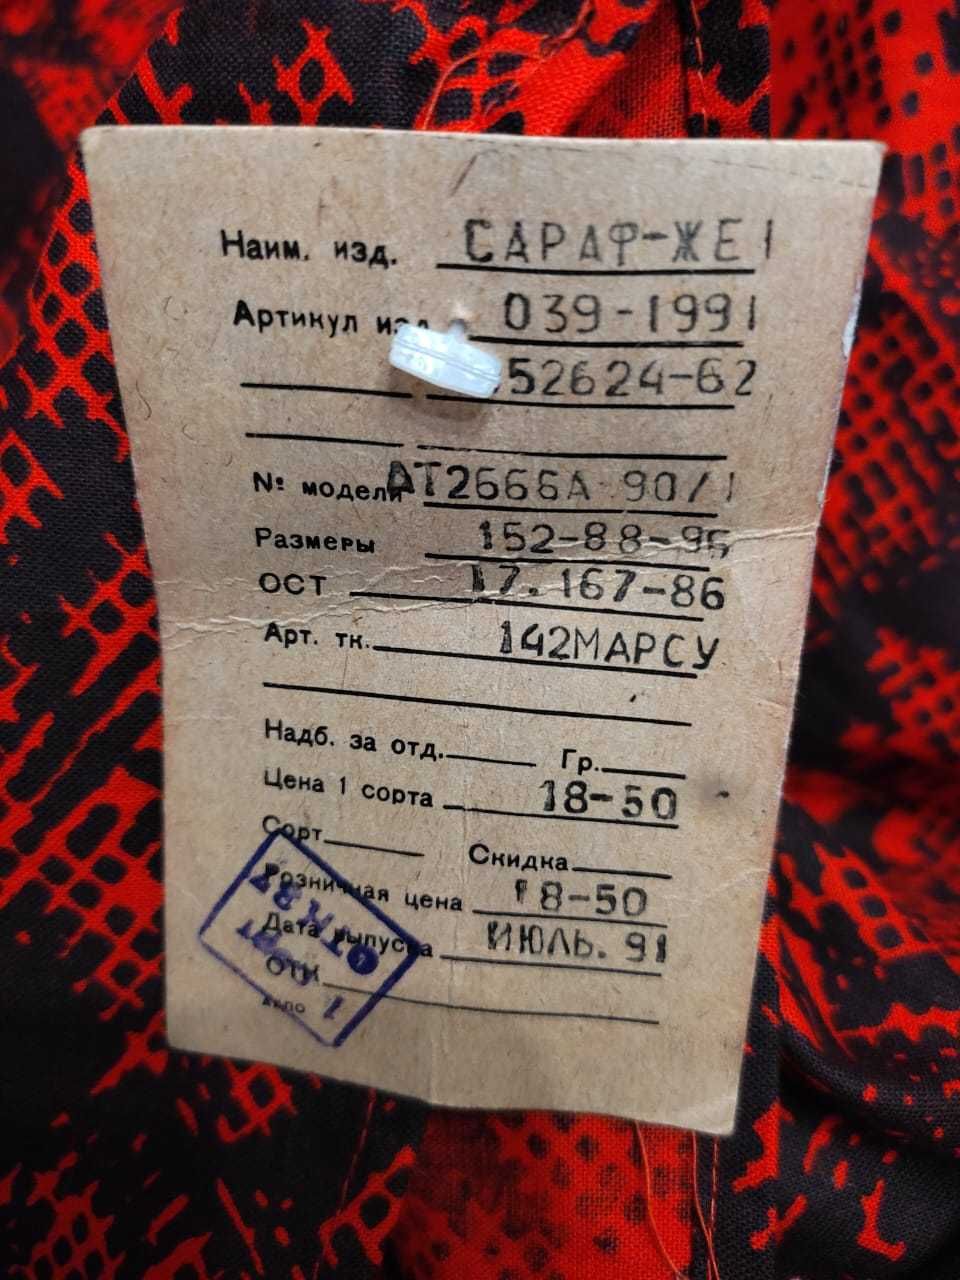 Наим. изд. САРАФ-ЖЕ
Артикул изд. 039-1991
52624-62
№ модели АТ2666А 90/1
Размеры 152-88-96
ОСТ 17.167-86
Арт. тк. 142МАРСУ
Надб. за отд. Гр.
Цена 1 сорта 18-50
Сорт Скидка
Розничная цена 18-50
Дата выпуска ИЮЛЬ. 91
ОТК
1 сорт